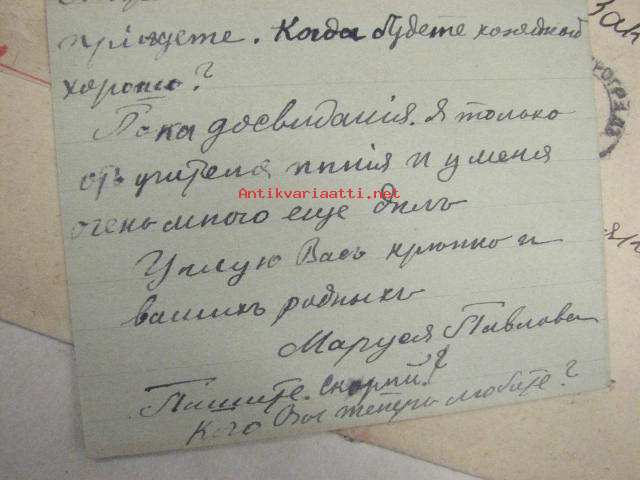 приѣдете. Когда будете
хорошо?
Пока досвиданія. Я только
отъ учителя пѣнія и у меня
очень много еще дѣлъ
Цѣлую Васъ крѣпко и
вашихъ родныхъ
Маруся Павлова
Пишите скорѣй!
Кого Вы теперь любите?
Antikvariaatti.net